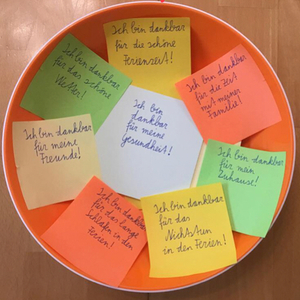 Ich bin dankbar
für die schöne
Ferienzeit!
Ich bin dankbar
für die Zeit
mit meiner
Familie!
Ich bin dankbar
für mein
Zuhause!
Ich bin dankbar
für das
Nichtstun
in den Ferien!
Ich bin dankbar
für das lange
Schlafen in den
Ferien!
Ich bin dankbar
für meine
Freunde!
Ich bin dankbar
für das schöne
Wetter!
Ich bin
dankbar
für meine
Gesundheit!